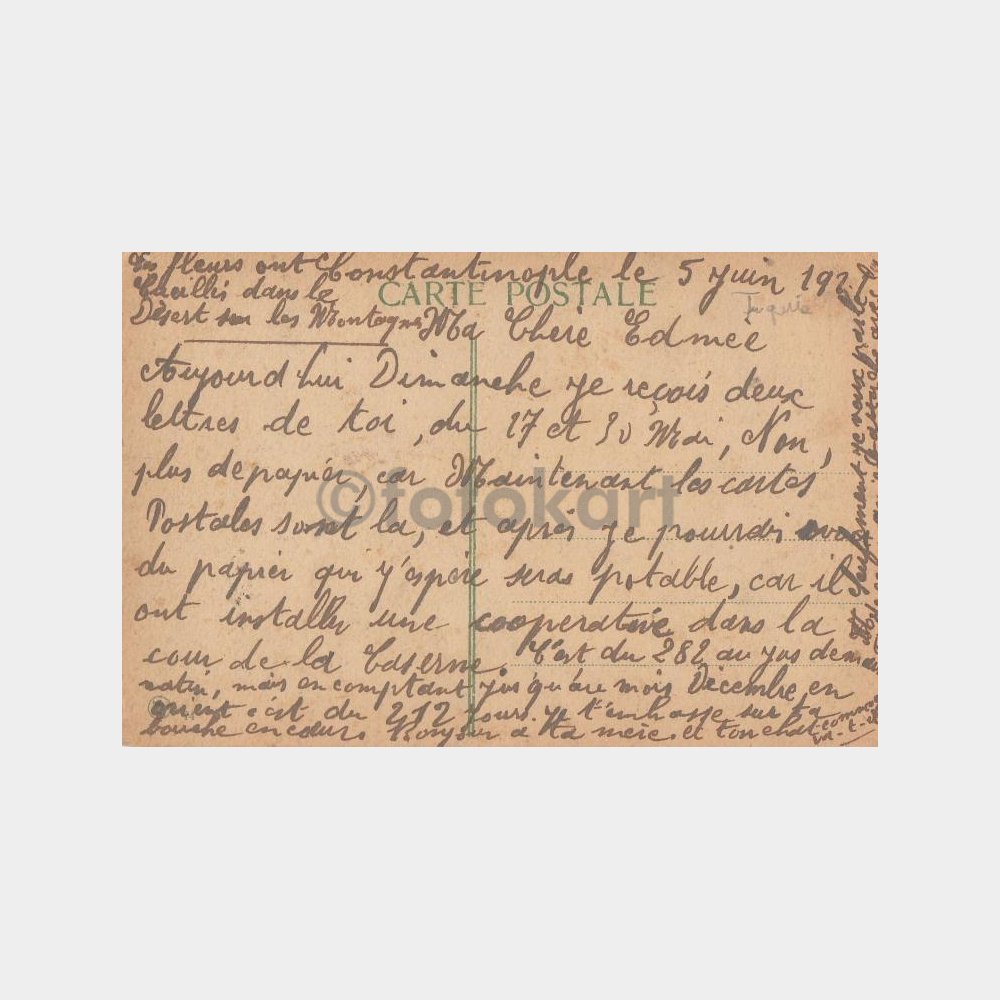 fleurs ont Constantinople le 5 Juin 192
Cueillis dans le
CARTE POSTALE
Turquie
Désert sur les Montagnes Ma Chère Edmée
Aujourd'hui Dimanche je reçois deux
lettres de toi, du 17 et 30 Mai, Non,
plus de papier, car Maintenant les cartes
©fotokart
Postales sont la, et après je pourrai
du papier qui j'espère seras potable, car il
ont installer une cooperative dans la
cour de la Caserne. C'est du 282 au jus demain
matin, mais en comptant jus qu'au mois Décembre en
orient c'est du 212 jours. je t'embrasse sur ta
bouche en cœur. Bonjour a ta mère et ton chat